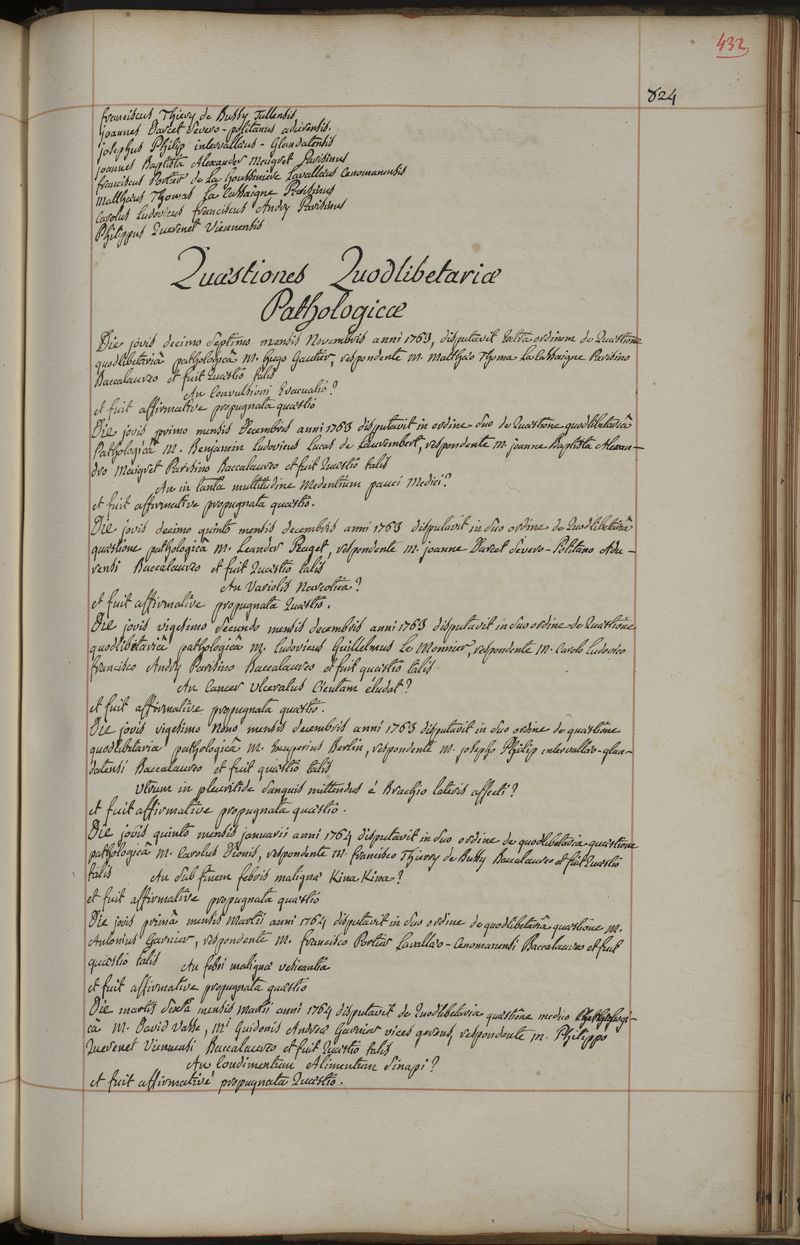 432
824
franciscus Thiery de Bussy Tullensis
joannes Darcet Severo-politanus adurensis.
josephus Philip intervallaus-Glandatensis
joannes Baptista Alexander Meugret Parisinus
franciscus Portier de La houssiniere Lavallaus Cenomanensis
Matthaus Thomas La Cassaigne Parisinus
Carolus Ludovicus franciscus Andry Parisinus
Philippus Quevenet Viennensis
Quæstiones Quodlibetariæ
Pathologicæ
Die jovis decimo septimo mensis Novembris anni 1763, disputavit extra ordinem de Quæstione
quodlibetariâ pathologicâ M. hugo Gautier, respondente M. Matthæo Thoma Lacassaigne Parisino
Baccalaureo et fuit Quæstio talis
An Convulsioni Evacuatio?
et fuit affirmative propugnata quæstio
Die jovis primo mensis Decembris anni 1763 disputavit in ordine suo de Quæstione quodlibetariâ
Pathologicâ M. Benjamin Ludovicus Lucas de Lauvembert, respondente M. joanne Baptista Alexan-
dro Meugret Parisino Baccalaureo et fuit Quæstio talis
An in tantâ multitudine Medentium pauci Medici?
et fuit affirmative propugnata quæstio.
Die jovis decimo quinto mensis decembris anni 1763 disputavit in suo ordine de Quodlibetariâ
quæstione pathologicâ M. Leander Peaget, respondente M. joanne Darcet Severo-Politano Adu-
rensi Baccalaureo et fuit Quæstio talis
An Variolis Narcotica?
et fuit affirmative propugnata Quæstio.
Die jovis vigesimo secundo mensis decembris anni 1763 disputavit in suo ordine de Quæstione
quodlibetariâ pathologicâ M. Ludovicus Guillelmus Le Monnier, respondente M. Carolo Ludovico
francisco Andry Parisino Baccalaureo et fuit quæstio talis
An Cancer Ulceratus Cicutam éludat?
et fuit affirmative propugnata quæstio.
Die jovis vigesimo nono mensis decembris anni 1763 disputavit in suo ordine de quæstione
quodlibetaria pathologicâ M. Exuperius Bertin, respondente M. josepho Philip intervallæo-glan-
datensi Baccalaureo et fuit quæstio talis
Utrum in pleuritide sanguis mittendus é Brachio lateris affecti?
et fuit affirmative propugnata quæstio.
Die jovis quinto mensis januarii anni 1764 disputavit in suo ordine de quodlibetaria quæstione
pathologicâ M. Carolus Dionis, respondente M. francisco Thierry de Bussy Baccalaureo et fuit Quæstio
talis An sub finem febris malignæ Kina Kina?
et fuit affirmative propugnata quæstio
Die jovis primâ mensis Martii anni 1764 disputavit in suo ordine de quodlibetariâ quæstione M.
Antonius Garnier, respondente M. francisco Portier Lavallæo-Cenomanensi Baccalaureo et fuit
quæstio talis An febri malignæ vesicantia
et fuit affirmative propugnata quæstio
Die martis sextâ mensis martii anni 1764 disputavit de Quodlibetaria quæstione medico
câ M. David Vasse, Mi Guidonis Andreæ Garnier vices gerens, respondente M. Philippo
Quevenet Viennensi Baccalaureo et fuit Quæstio talis
An Condimentum Alimentum Sinapi?
et fuit affirmativé propugnata Quæstio.